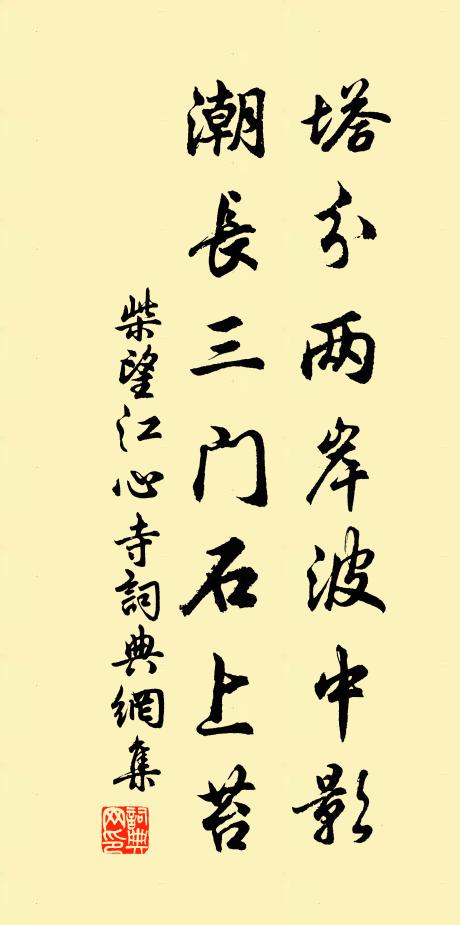 塔分两岸波中影
潮長三门石上苔
柴望江心寺詞典網集
詞典
网印